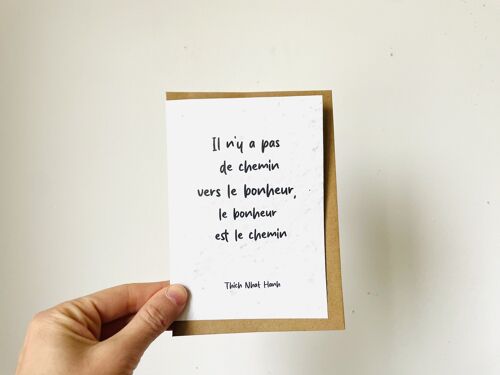 Il n'y a pas
de chemin
vers le bonheur,
le bonheur
est le chemin
Thich Nhat Hanh